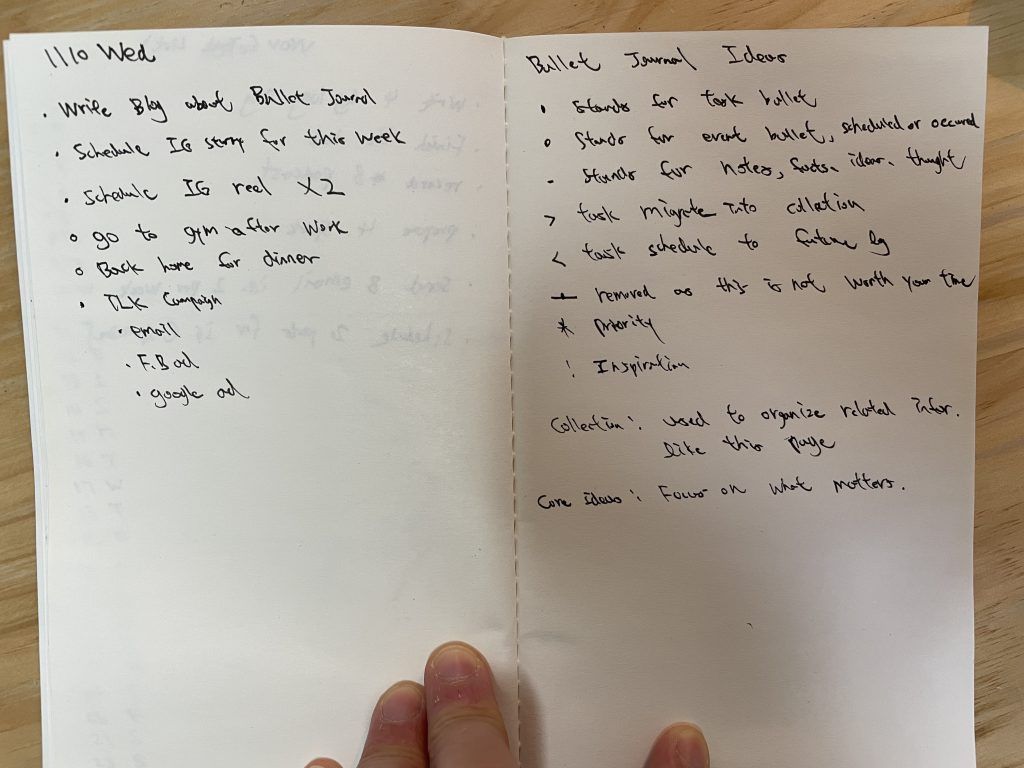 1110 Wed
• Write Blog about Bullet Journal
• Schedule IG story for this week
• Schedule IG reel X2
o go to gym after work
o Back home for dinner
• TLK Campaign
• email
• F.B ad
• google ad
Bullet Journal Ideas
• Stands for task bullet
o Stands for event bullet, scheduled or occured
- Stands for notes, facts, ideas, thought
> task migrate into collation
< task schedule to future lg
removed as this is not worth your time
* priority
! Inspiration
Collection: used to organize related infor.
like this page
Core Ideas: Focus on what matters.